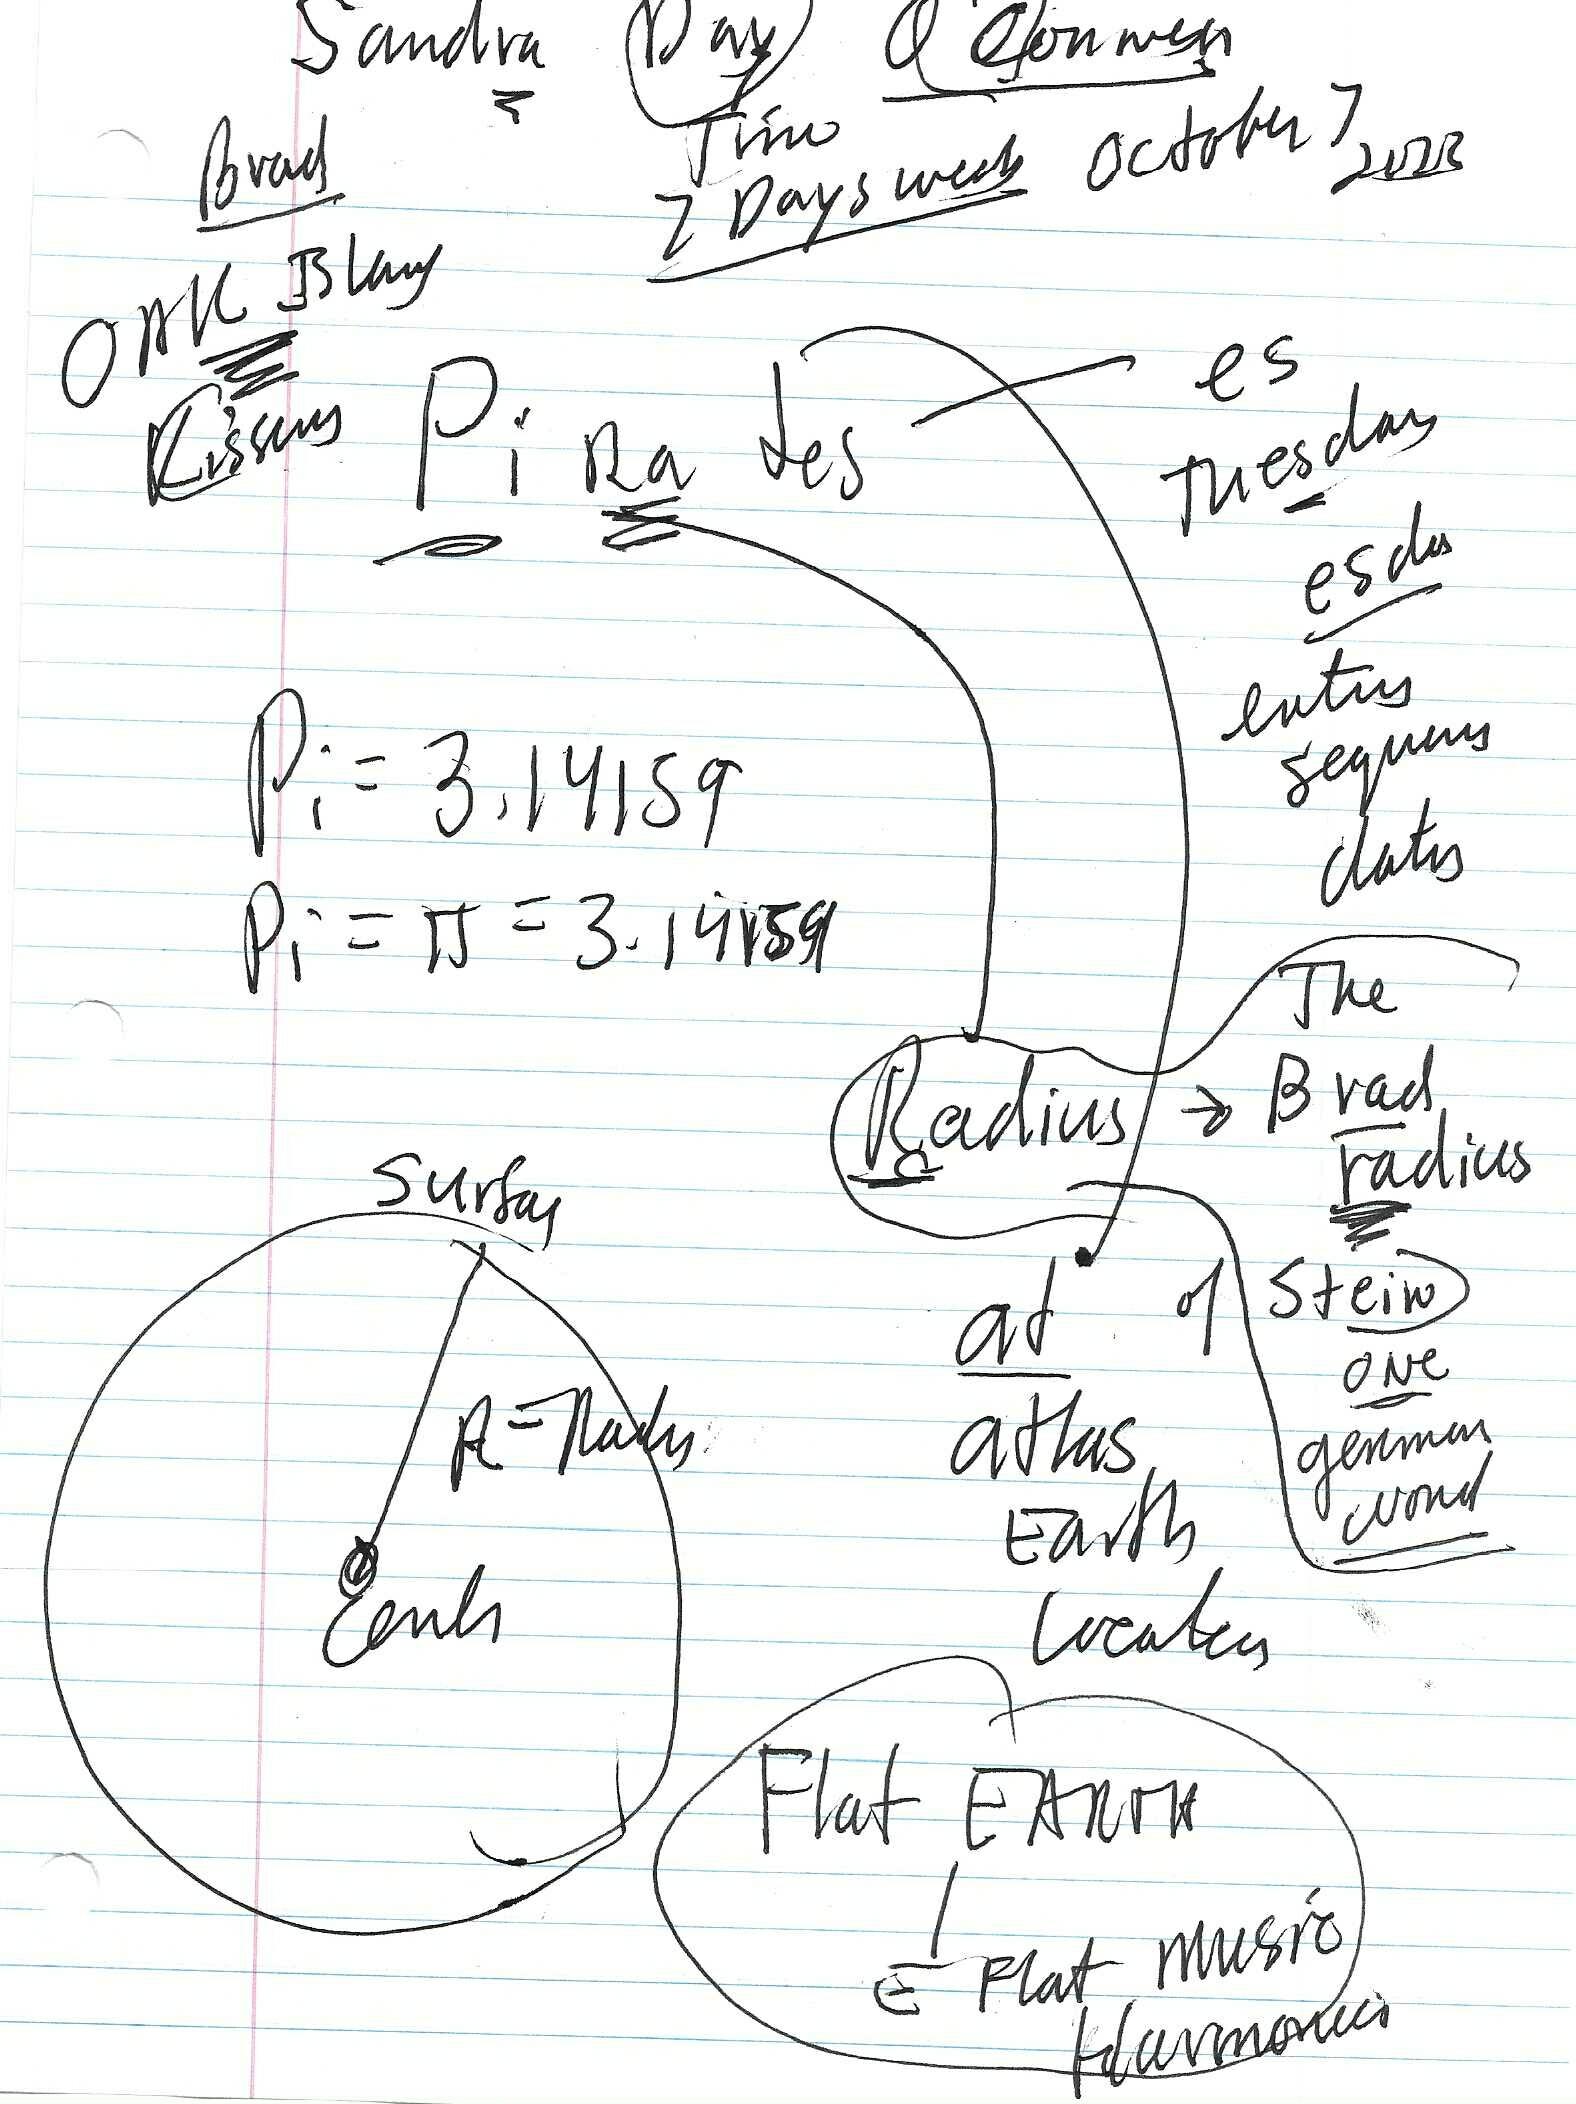 Sandra Day O'Connor
Time
7 Days week October 7
2023
Brad
OAK Blay
Pi Ra tes
es
Tuesday
esda
sequens
dates
Pi = 3.14159
Pi = π = 3.14159
The
Radius → Brad
radius
Surfas
at of Stein
one
german
word
R = Radus
atlas
Earth
Flat EARTH
E Flat music
Harmonics